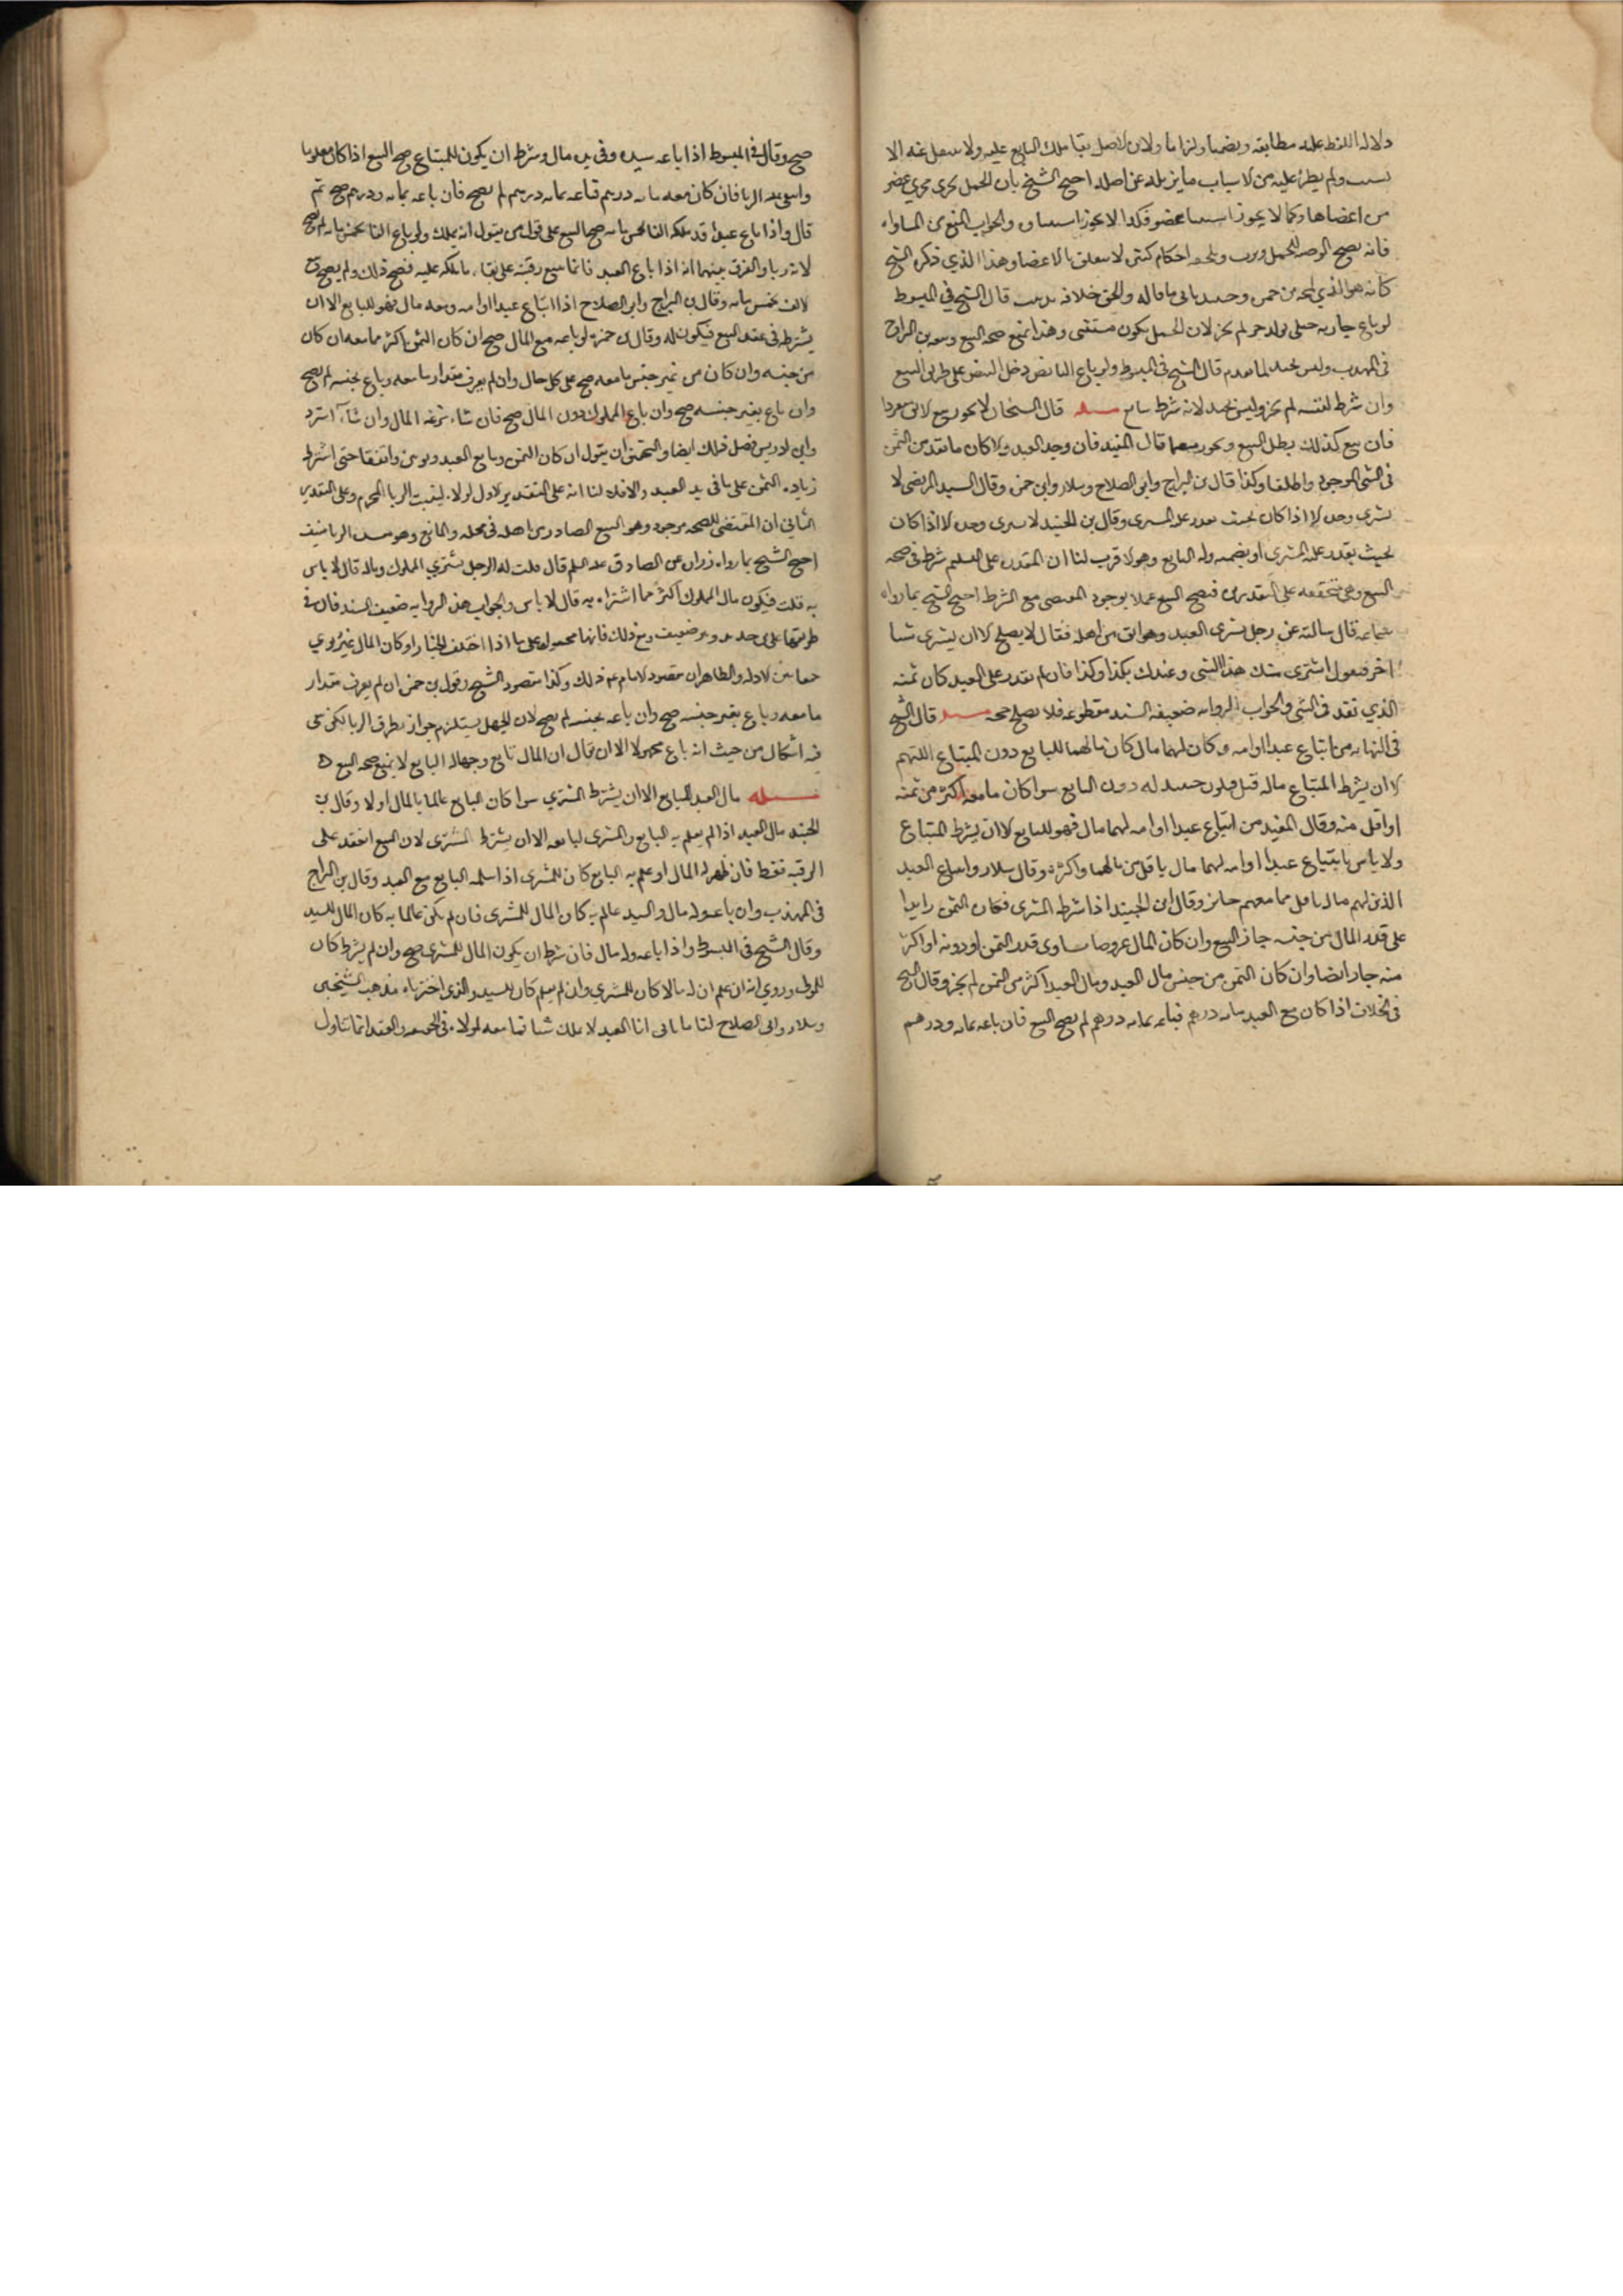 دلالة اللفظ عليه مطابقة وتضمنا والتزاما ولان الاصل بقا ملك البايع عليه ولا ينتقل عنه الا
بسبب ولم يطرء عليه من الاسباب ما يزيله عن اصله احتج الشيخ بان الحمل يجري مجري عضو
من اعضاها وكما لا يجوز استثنا عضو فكذا لا يجوز استثناوه والجواب المنع من المساواه
فانه يصح الوصيه للحمل ويرث ويلحقه احكام كثيره لا تتعلق بالاعضا وهذا الذي ذكره الشيخ
كانه هو الذي ابن حمزه وحينئذ ياتي ما قاله والحق خلافه تذنيب قال الشيخ في المبسوط
لو باع جاريه حبلى بولد حر لم يجز لان الحمل يكون مستثنى وهذا يمنع صحه البيع وتبعه بن البراج
في المهذب وليس بجيد لما تقدم قال الشيخ في المبسوط ولو باع البايض دخل البيض على طريق البيع
وان شرط لنفسه لم يجز وليس بجيد لانه شرط سايغ مسله قال الشيخان لا يجوز بيع الابق منفردا
فان بيع كذلك بطل البيع ويجوز منضما قال المفيد فان وجد العبد والا كان ما نقد من الثمن
في الشي الموجود واطلقا وكذا قال بن البراج وابو الصلاح وسلار وابن حمزه وقال السيد المرتضى لا
يشترى وحده الا اذا كان بحيث يقدر عليه المشتري وقال بن الجنيد لا يشترى وحده الا اذا كان
بحيث يقدر عليه المشتري او يضمنه له البايع وهو الاقرب لنا ان القدره على التسليم شرط في صحه
البيع وهي متحققه على التقديرين فيصح البيع عملا بوجود المقتضى مع الشرط احتج الشيخ بما رواه
سماعه قال سالته عن رجل يشترى العبد وهو ابق من اهله فقال لا يصلح الا ان يشترى شيا
اخر فيقول اشترى منك هذا الشي وعبدك بكذا وكذا فان لم يقدر على العبد كان ثمنه
الذي نقد في الشي والجواب الروايه ضعيفه السند مقطوعه فلا يصلح حجه مسله قال الشيخ
في النهايه من ابتاع عبدا او امه وكان لهما مال كان مالهما للبايع دون المبتاع اللهم
الا ان يشرط المبتاع ماله فيكون حينئذ له دون البايع سوا كان ما معه اكثر من ثمنه
او اقل منه وقال المفيد من ابتاع عبدا او امه لهما مال فهو للبايع الا ان يشرط المبتاع
ولا باس بابتياع عبدا او امه لهما مال باقل من مالهما واكثر وقال سلار وابتياع العبيد
الذين لهم مال باقل مما معهم جايز وقال ابن الجنيد اذا شرطه المشترى فكان الثمن زايدا
على قدر المال من جنسه جاز البيع وان كان المال عروضا يساوى قدر الثمن او دونه او اكثر
منه جاز ايضا وان كان الثمن من جنس مال العبد ومال العبد اكثر من الثمن لم يجز وقال الشيخ
في الخلاف اذا كان مع العبد مايه درهم فباعه بمايه درهم لم يصح البيع فان باعه بمايه ودرهم
صح وقال في المبسوط اذا باعه سيده وفي يده مال وشرط ان يكون للمبتاع صح البيع اذا كان معلوما
وانتفى عنه الربا فان كان معه مايه درهم فباعه بمايه درهم لم يصح فان باعه بمايه ودرهم صح ثم
قال واذا باع عبدا قد ملكه الفا بخمس مايه صح البيع على قول من يقول انه يملك ولو باع الفا بخمس مايه لم يصح
لانه ربا والفرق بينهما انه اذا باع العبد فانما يبيع رقبته على بقاء ما ملكه عليه فصح ذلك ولم يصح بيع
الالف بخمس مايه وقال بن البراج وابو الصلاح اذا ابتاع عبدا او امه ومعه مال فهو للبايع الا ان
يشترطه في عقد البيع فيكون له وقال بن حمزه لو باعه مع المال صح ان كان الثمن اكثر مما معه ان كان
من جنسه وان كان من غير جنس ما معه صح على كل حال وان لم يعرف مقدار ما معه وباع بجنسه لم يصح
وان باع بغير جنسه صح وان باع المملوك دون المال صح فان شاء سوغه المال وان شاء استرد
وابن ادريس فصل كذلك ايضا والتحقيق ان يقول ان كان الثمن ومايع العبد ربويين واتفقا جنسا اشترط
زياده الثمن على ما في يد العبد والا فلا لنا انه على التقدير الاول لولاه لثبت الربا المحرم وعلى التقدير
الثاني ان المقتضى للصحه موجود وهو البيع الصادر من اهله في محله والمانع وهو ثبوت الربا منتف
احتج الشيخ بما رواه زراره عن الصادق عليه السلم قال قلت له الرجل يشتري المملوك وماله قال لا باس
به قلت فيكون مال المملوك اكثر مما اشتراه به قال لا باس والجواب هذه الروايه ضعيفه السند فان في
طريقها على بن حديد وهو ضعيف ومع ذلك فانها محموله على ما اذا اختلف الجنسان او كان المال غير ربوي
جمعا بين الادله والظاهر ان مقصود الامام عم ذلك وكذا مقصود الشيخ وقول بن حمزه ان لم يعرف مقدار
ما معه وباع بغير جنسه صح وان باعه بجنسه لم يصح لان الجهل يستلزم جواز تطرق الربا لكن بقى
فيه اشكال من حيث انه باع مجهولا الا ان يقال ان المال تابع وجهاله التابع لا يمنع صحه البيع ه
مسله مال العبد للبايع الا ان يشترط المشتري سوا كان البايع عالما بالمال او لا وقال بن
الجنيد مال العبد اذا لم يعلم به البايع والمشترى لبايعه الا ان يشترط المشترى لان البيع انعقد على
الرقبه فقط فان ظهر له المال او علم به البايع كان للمشترى اذا سلمه البايع مع العبد وقال بن البراج
في المهذب وان باع وله مال والسيد عالم به كان المال للمشترى فان لم يكن عالما به كان المال للسيد
وقال الشيخ في المبسوط واذا باعه وله مال فان شرط ان يكون المال للمشترى صح وان لم يشرط كان
للمولى وروي انه ان علم ان له مالا كان للمشتري وان لم يعلم كان للسيد والذي اخترناه مذهب الشيخين
وسلار وابي الصلاح لنا ما ياتي انا العبد لا يملك شيا فما معه لمولاه في الحقيقه والعقد انما تناول